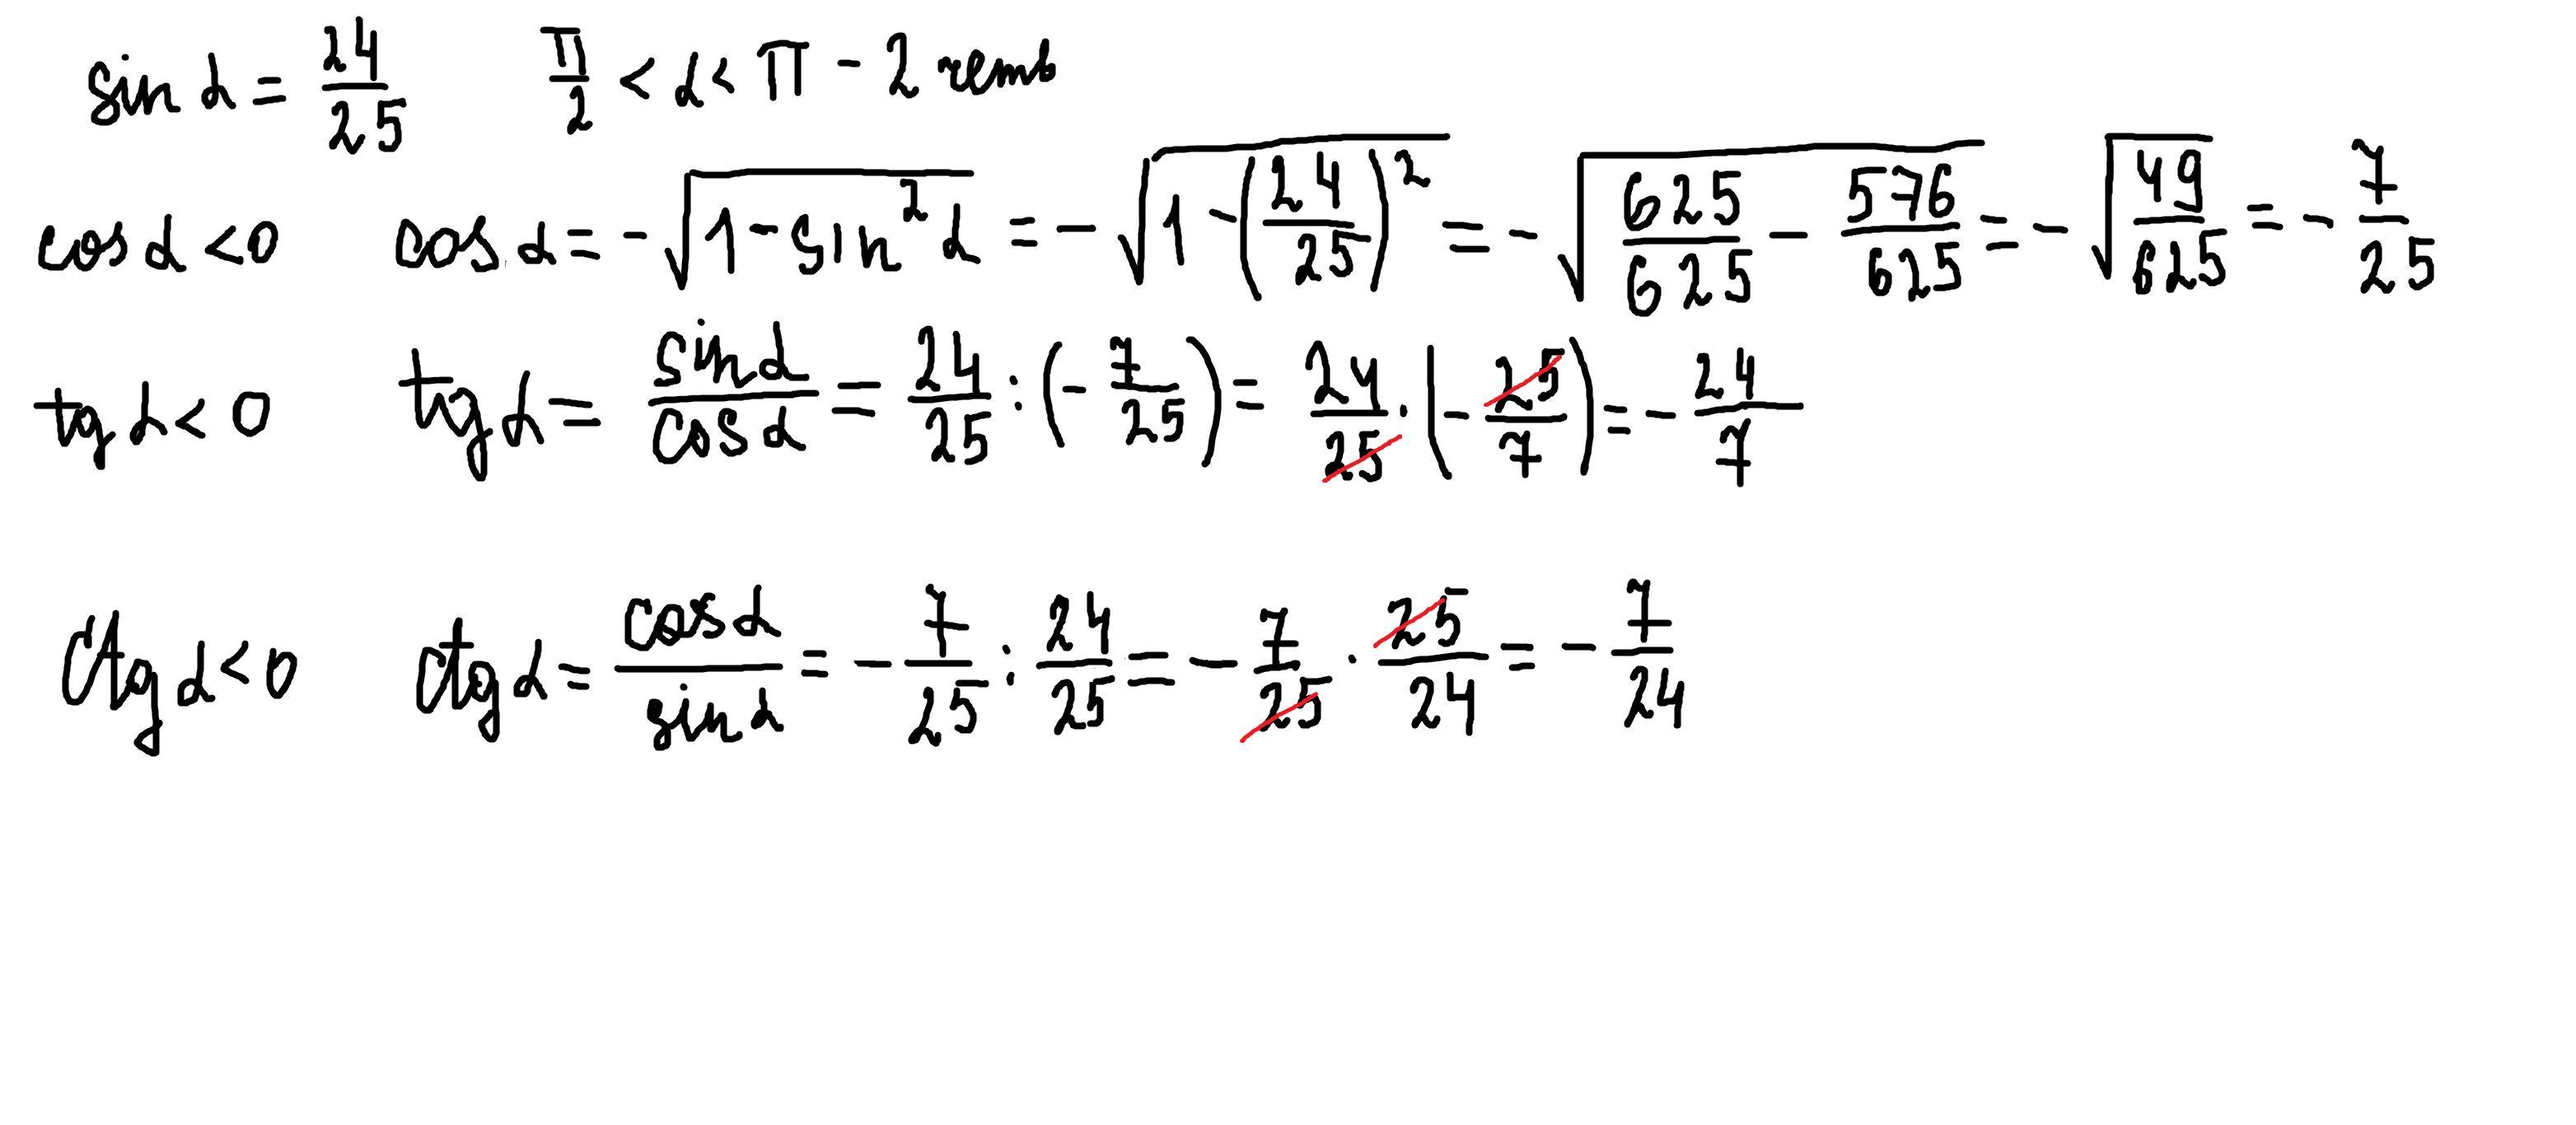 sin α = 24/25 π/2 < α < π - 2 четв
cos α < 0 cos α = -√(1 - sin²α) = -√(1 - (24/25)²) = -√(625/625 - 576/625) = -√(49/625) = -7/25
tg α < 0 tg α = sin α/cos α = 24/25 : (-7/25) = 24/25 · (-25/7) = -24/7
ctg α < 0 ctg α = cos α/sin α = -7/25 : 24/25 = -7/25 · 25/24 = -7/24